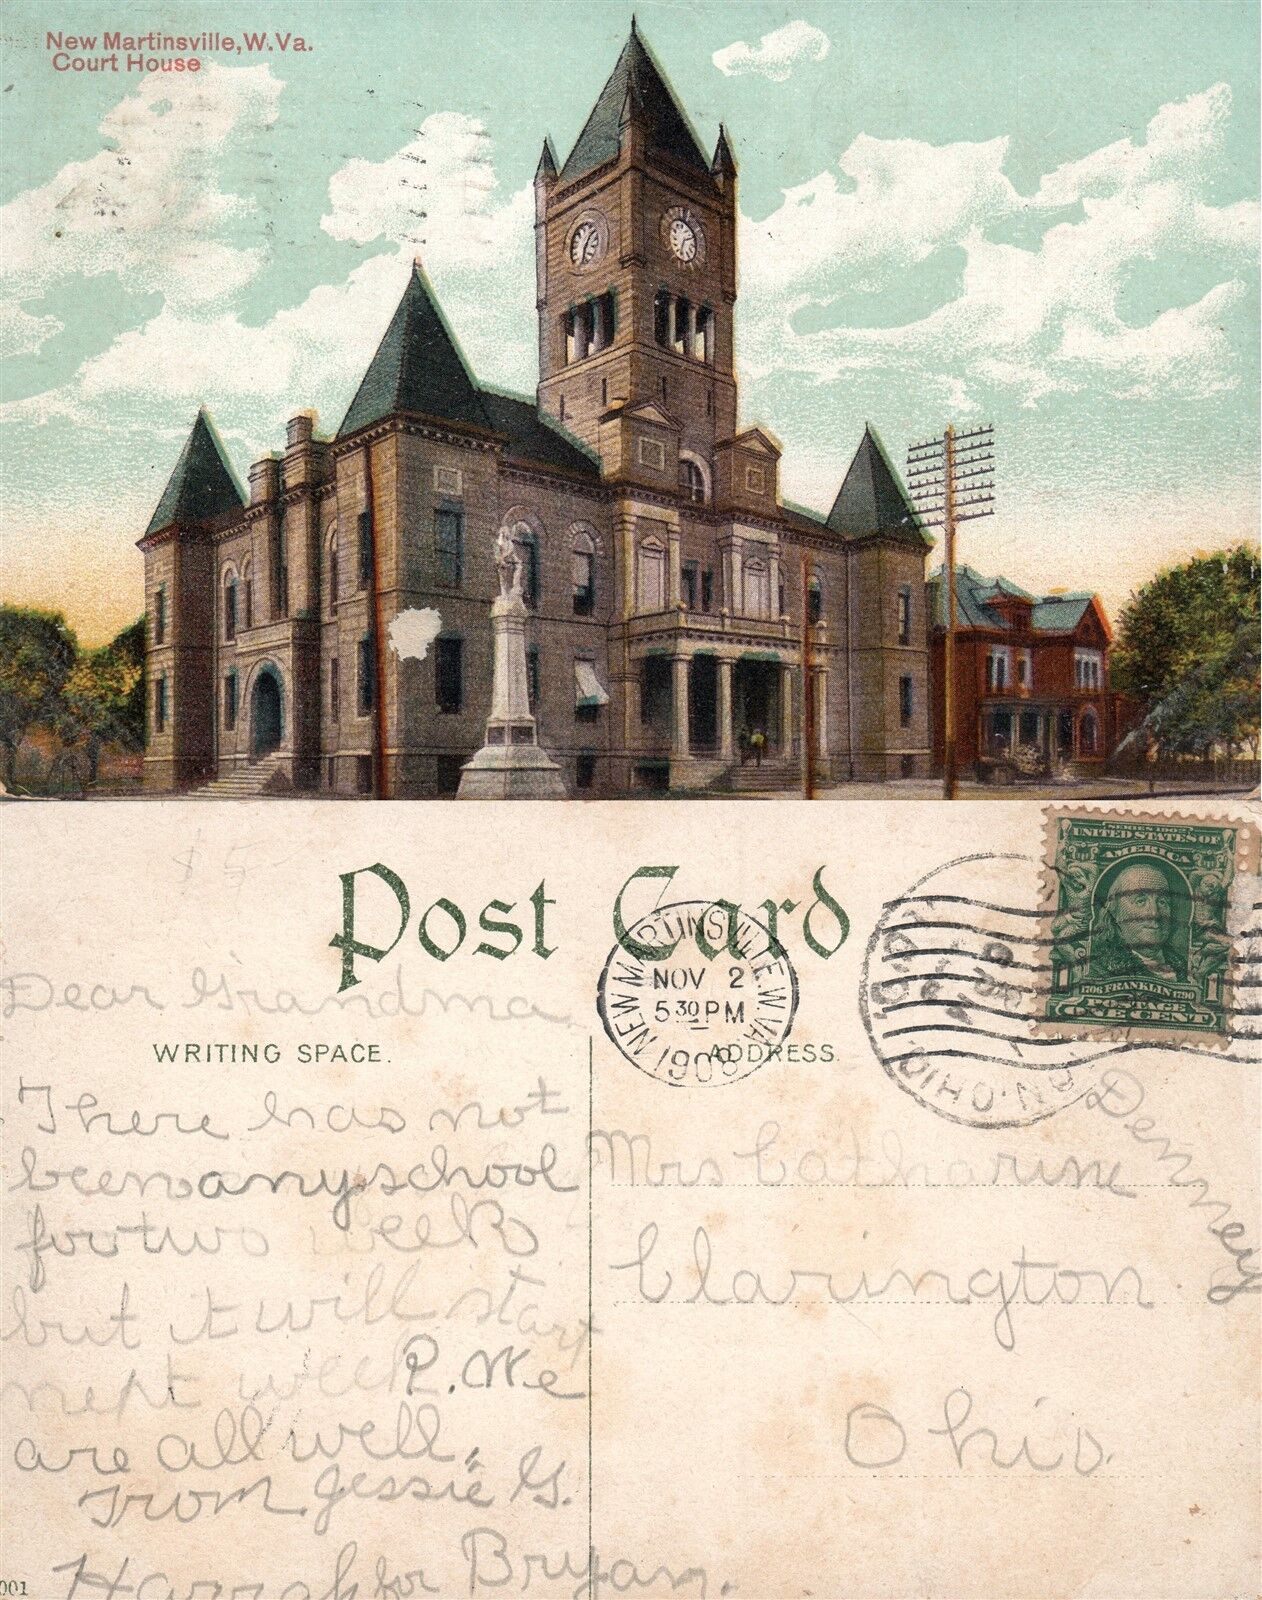 New Martinsville, W.Va.
Court House
$5
Post Card
SERIES 1902
UNITED STATES OF
AMERICA
1706 FRANKLIN 1790
1 POSTAGE 1
ONE CENT
NEW MARTINSVILLE, W.VA.
NOV 2
5 30 PM
1908
OHIO.
WRITING SPACE.
ADDRESS.
Dear Grandma
There has not
been any school
for two week
but it will start
next week P. We
are all well.
From Jessie G.
Harrah for Bryan.
Mrs Catharine
Denney
Clarington
Ohio.
001